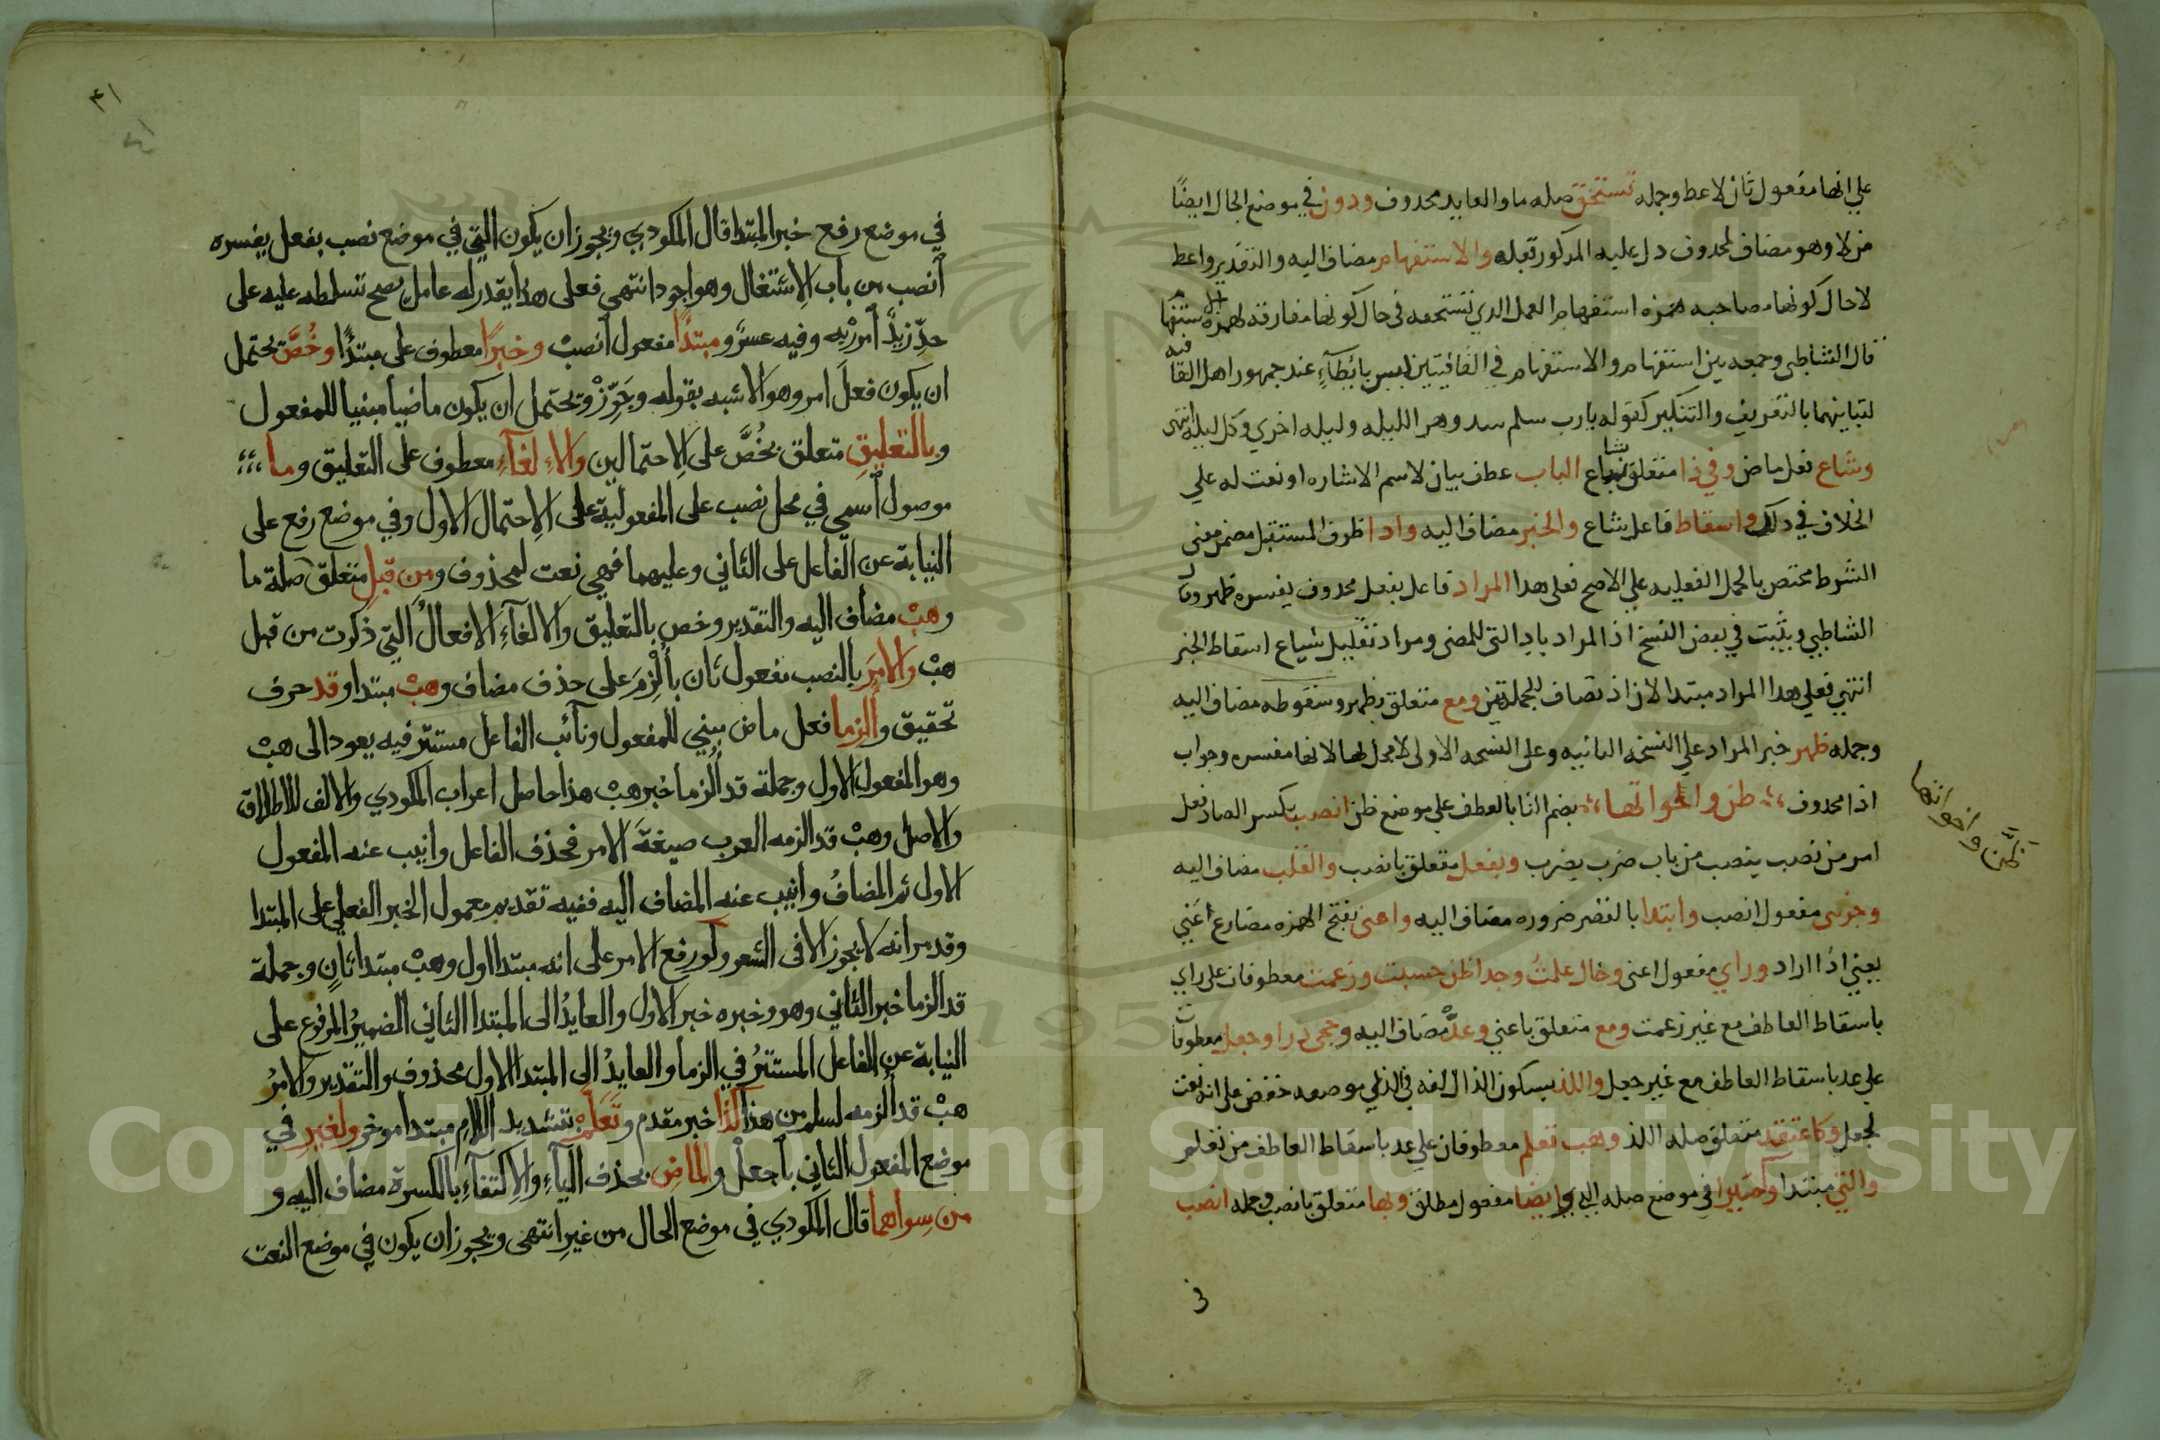 علي انها مفعول ثان لاعط وجمله تستحق صله ما والعايد محدوف ودون في موضع الحال ايضًا
من لا وهو مضاف لمحدوف دل عليه المدكور قبله والاستفهام مضاف اليه والتقدير واعط
لا حال كونها مصاحبه همزه استفهام العمل الدي تستحقه في حال كونها مفارقه لهمزه الاستفهام
قال الشاطبي وجمعه بين استفهام والاستفهام في القافيتين ليس بايطآءٍ عند جمهور اهل القافيه
لتباينهما بالتعريف والتنكير كقوله يارب سلم سدوهن الليله وليله اخري وكل ليله انتهى
وشاع فعل ماض وفي ذا متعلق بشاع الباب عطف بيان لاسم الاشاره او نعت له علي
الخلاف في دلك واسقاط فاعل شاع والخبر مضاف اليه وادا ظرف لمستقبل مضمن معنى
الشرط مختص بالجمل الفعليه علي الاصح فعلي هدا المراد فاعل بفعل محدوف يفسره ظهر وقال
الشاطبي ويثبت في بعض النسخ اذ المراد باد التي للمضي ومراد تقليل شياع اسقاط الخبر
انتهي فعلي هدا المراد مبتدا لان اذ تضاف للجملتين ومع متعلق بظهر وسقوطه مضاف اليه
وجمله ظهر خبر المراد علي النسخه الثانيه وعلي النسخه الاولي لا محل لها لانها مفسره وجواب
اذا محدوف ظن واخواتها بضم التا بالعطف علي موضع ظن انصب بكسر الصاد فعل
امر من نصب ينصب من باب ضرب يضرب وبفعل متعلق بانصب والقلب مضاف اليه
وجزءى مفعول انصب وابتدا بالقصر ضروره مضاف اليه واعنى بفتح الهمزه مضارع اعني
يعني اذا اراد وراي مفعول اعنى وخال علمتُ وجدا ظن حسبت وزعمت معطوفات على راي
باسقاط العاطف مع غير زعمت ومع متعلق باعني وعدّ مضاف اليه وحجى درا وجعل معطوفات
علي عد باسقاط العاطف مع غير جعل واللذ بسكون الذال لغه في الذي موضعه خفض على انه نعت
لجعل وكاعتقد متعلق صله اللذ وهب تعلم معطوفان علي عد باسقاط العاطف من تعلم
والتي مبتدا وكصيرا في موضع صله التي وايضا مفعول مطلق وبها متعلق بانصب وجمله انصب
في
ظن واخواتها
٤١
٤١
في موضع رفع خبر المبتدا قال المكودي ويجوز ان يكون التي في موضع نصب بفعل يفسره
اَنصب من باب الاِشتغال وهو اجود انتهى فعلى هذا يقدر له عامل يصح تسلطه عليه على
حدّ زيدًا اَمررْبِه وفيه عسرٌ ومبتدًا مفعول اَنصبْ وخبرًا معطوف على مبتدًا وخُصَّ يحتمل
ان يكون فعل امر وهو الاشبه بقوله وجَوِّزْ ويحتمل ان يكون ماضيا مبنيا للمفعول
وبالتعليقِ متعلق بخُصَّ على الاِحتمالين والاِلغآءِ معطوف على التعليق وما
موصول اسمي في محل نصب على المفعولية على الاِحتمال الاول وفي موضع رفع على
النيابة عن الفاعل على الثاني وعليهما فهي نعت لمحذوف ومن قبلِ متعلق صلة ما
وهبْ مضاف اليه والتقدير وخص بالتعليق والالغآءِ الافعالُ التي ذكرت من قبل
هبْ والامرَ بالنصب مفعول ثان بأُلْزِمَ على حذف مضاف وهبْ مبتدا وقد حرف
تحقيق وأُلزما فعل ماض مبني للمفعول ونائب الفاعل مستتر فيه يعود الى هبْ
وهو المفعول الاول وجملة قد اُلزما خبر هبْ هذا حاصل اعراب المكودي والالف للاطلاق
والاصل وهبْ قد الزمه العرب صيغةَ الامر فحذف الفاعل وانيب عنه المفعول
الاول ثم المضافُ وانيب عنه المضاف اليه ففيه تقديم معمول الخبر الفعلي على المبتدا
وقد مر انه لا يجوز الا فى الشعر ولو رفع الامر على انه مبتدا اول وهبْ مبتدا ثانٍ وجملة
قد الزما خبر الثاني وهو وخبره خبر الاول والعايدُ الى المبتدا الثاني الضميرُ المرفوع على
النيابة عن الفاعل المستترُ في الزما والعايدُ الى المبتدا الاول محذوف والتقدير والامرُ
هبْ قد اُلزمه لسلم من هذا كذا خبر مقدم وتَعَلَّمْ بتشديد اللام مبتدا موخر ولغير في
موضع المفعول الثاني باجعلْ والماضِ بحذف اليآءِ والاِكتفآءِ بالكسرة مضاف اليه و
من سِواهما قال المكودي في موضع الحال من غيرِ انتهى ويجوز ان يكون في موضع النعت
Copyright © King Saud University
1957